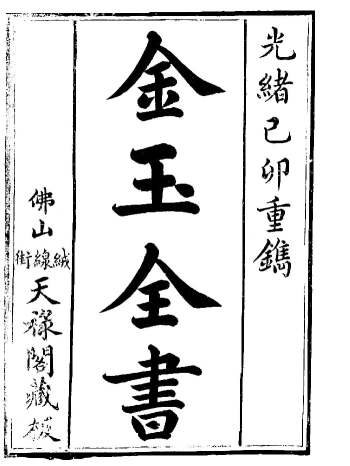 光緒己卯重鐫
金玉全書
佛山
絨線街
天祿閣藏板